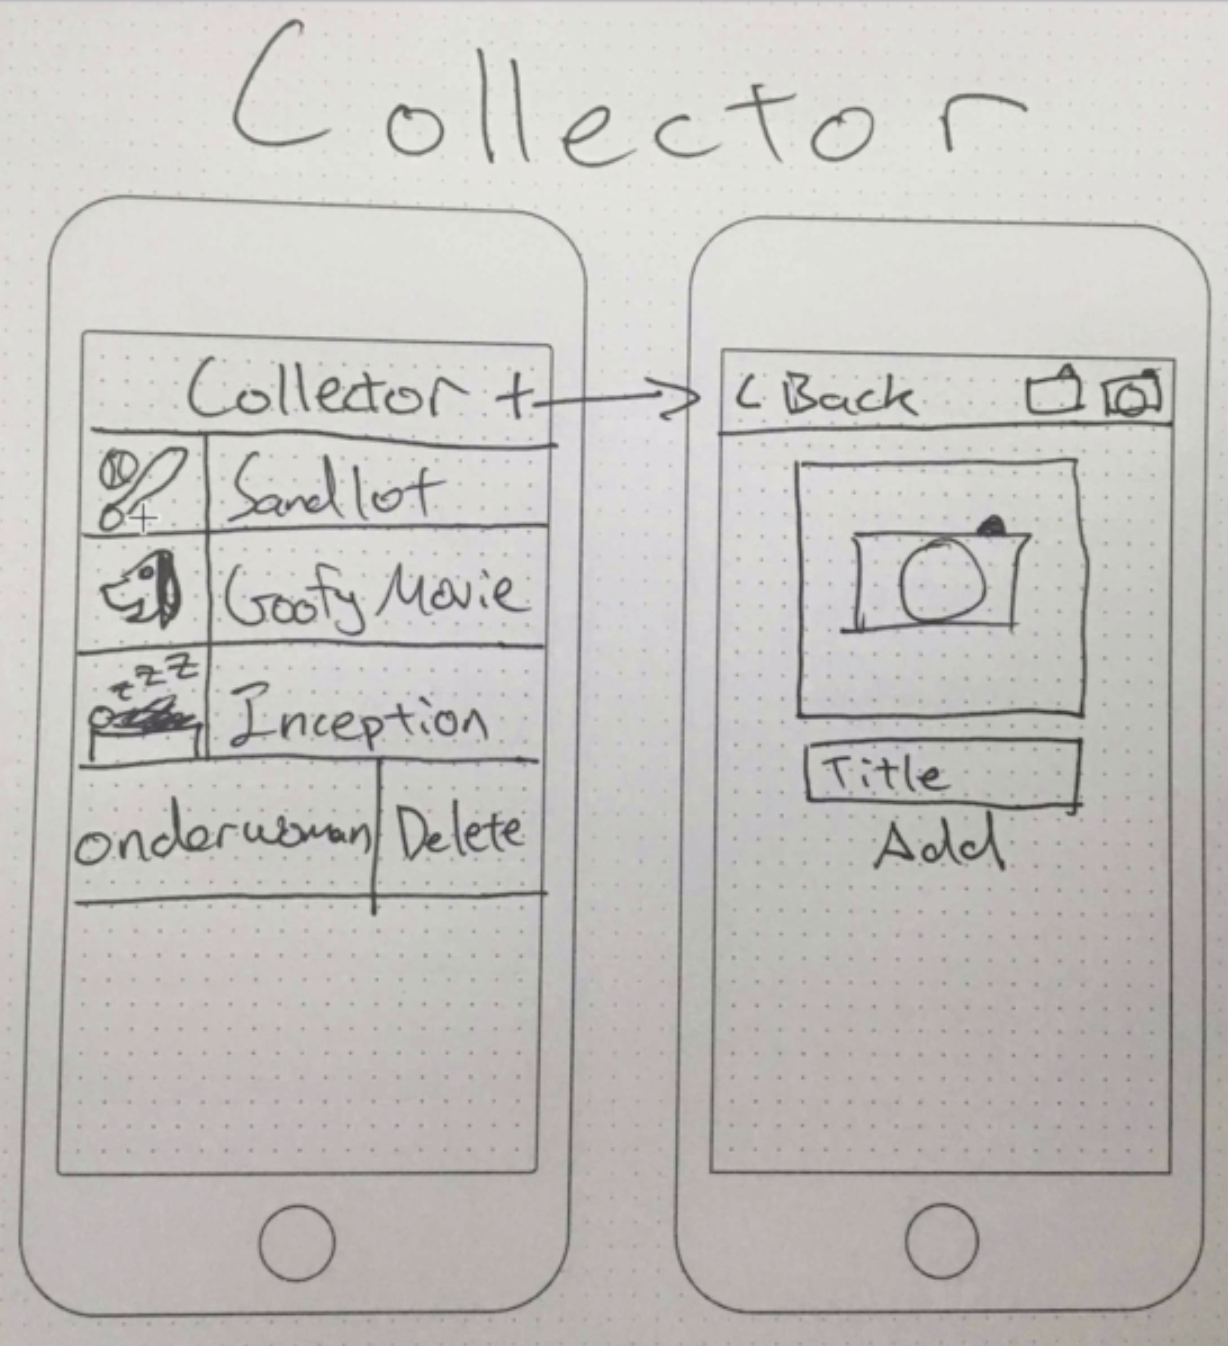 Collector
Collector +
Sandlot
Goofy Movie
zzz
Inception
onderwoman Delete
< Back
Title
Add